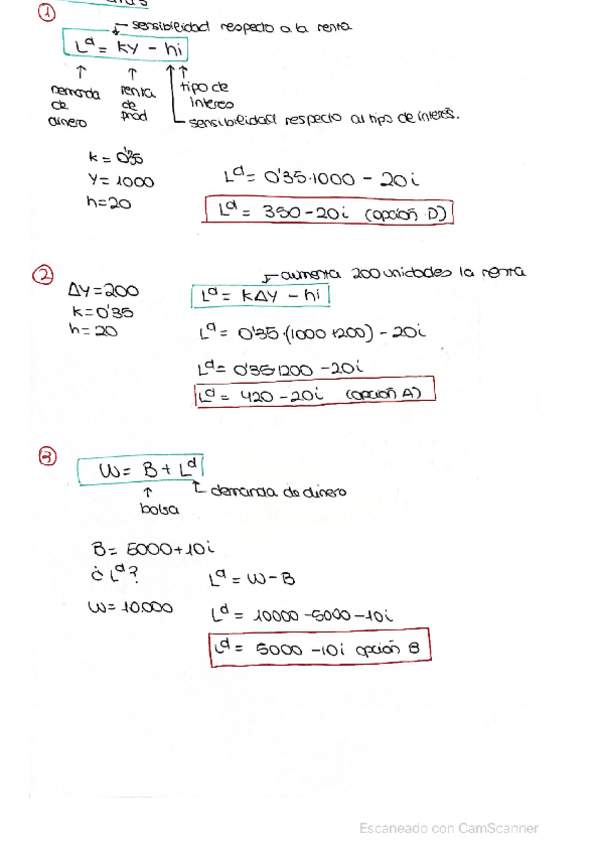 ①
sensibilidad respecto a la renta
Lᵈ = kY - hi
demanda de dinero
renta de prod
tipo de interes
sensibilidad respecto al tipo de interés.
k = 0'35
Y = 1000
h = 20
Lᵈ = 0'35·1000 - 20i
Lᵈ = 350 - 20i (opción D)
②
aumenta 200 unidades la renta
ΔY = 200
k = 0'35
h = 20
Lᵈ = kΔY - hi
Lᵈ = 0'35·(1000+200) - 20i
Lᵈ = 0'35·1200 - 20i
Lᵈ = 420 - 20i (opción A)
③
W = B + Lᵈ
demanda de dinero
bolsa
B = 5000 + 10i
¿Lᵈ?
W = 10.000
Lᵈ = W - B
Lᵈ = 10000 - 5000 - 10i
Lᵈ = 5000 - 10i opción B
Escaneado con CamScanner